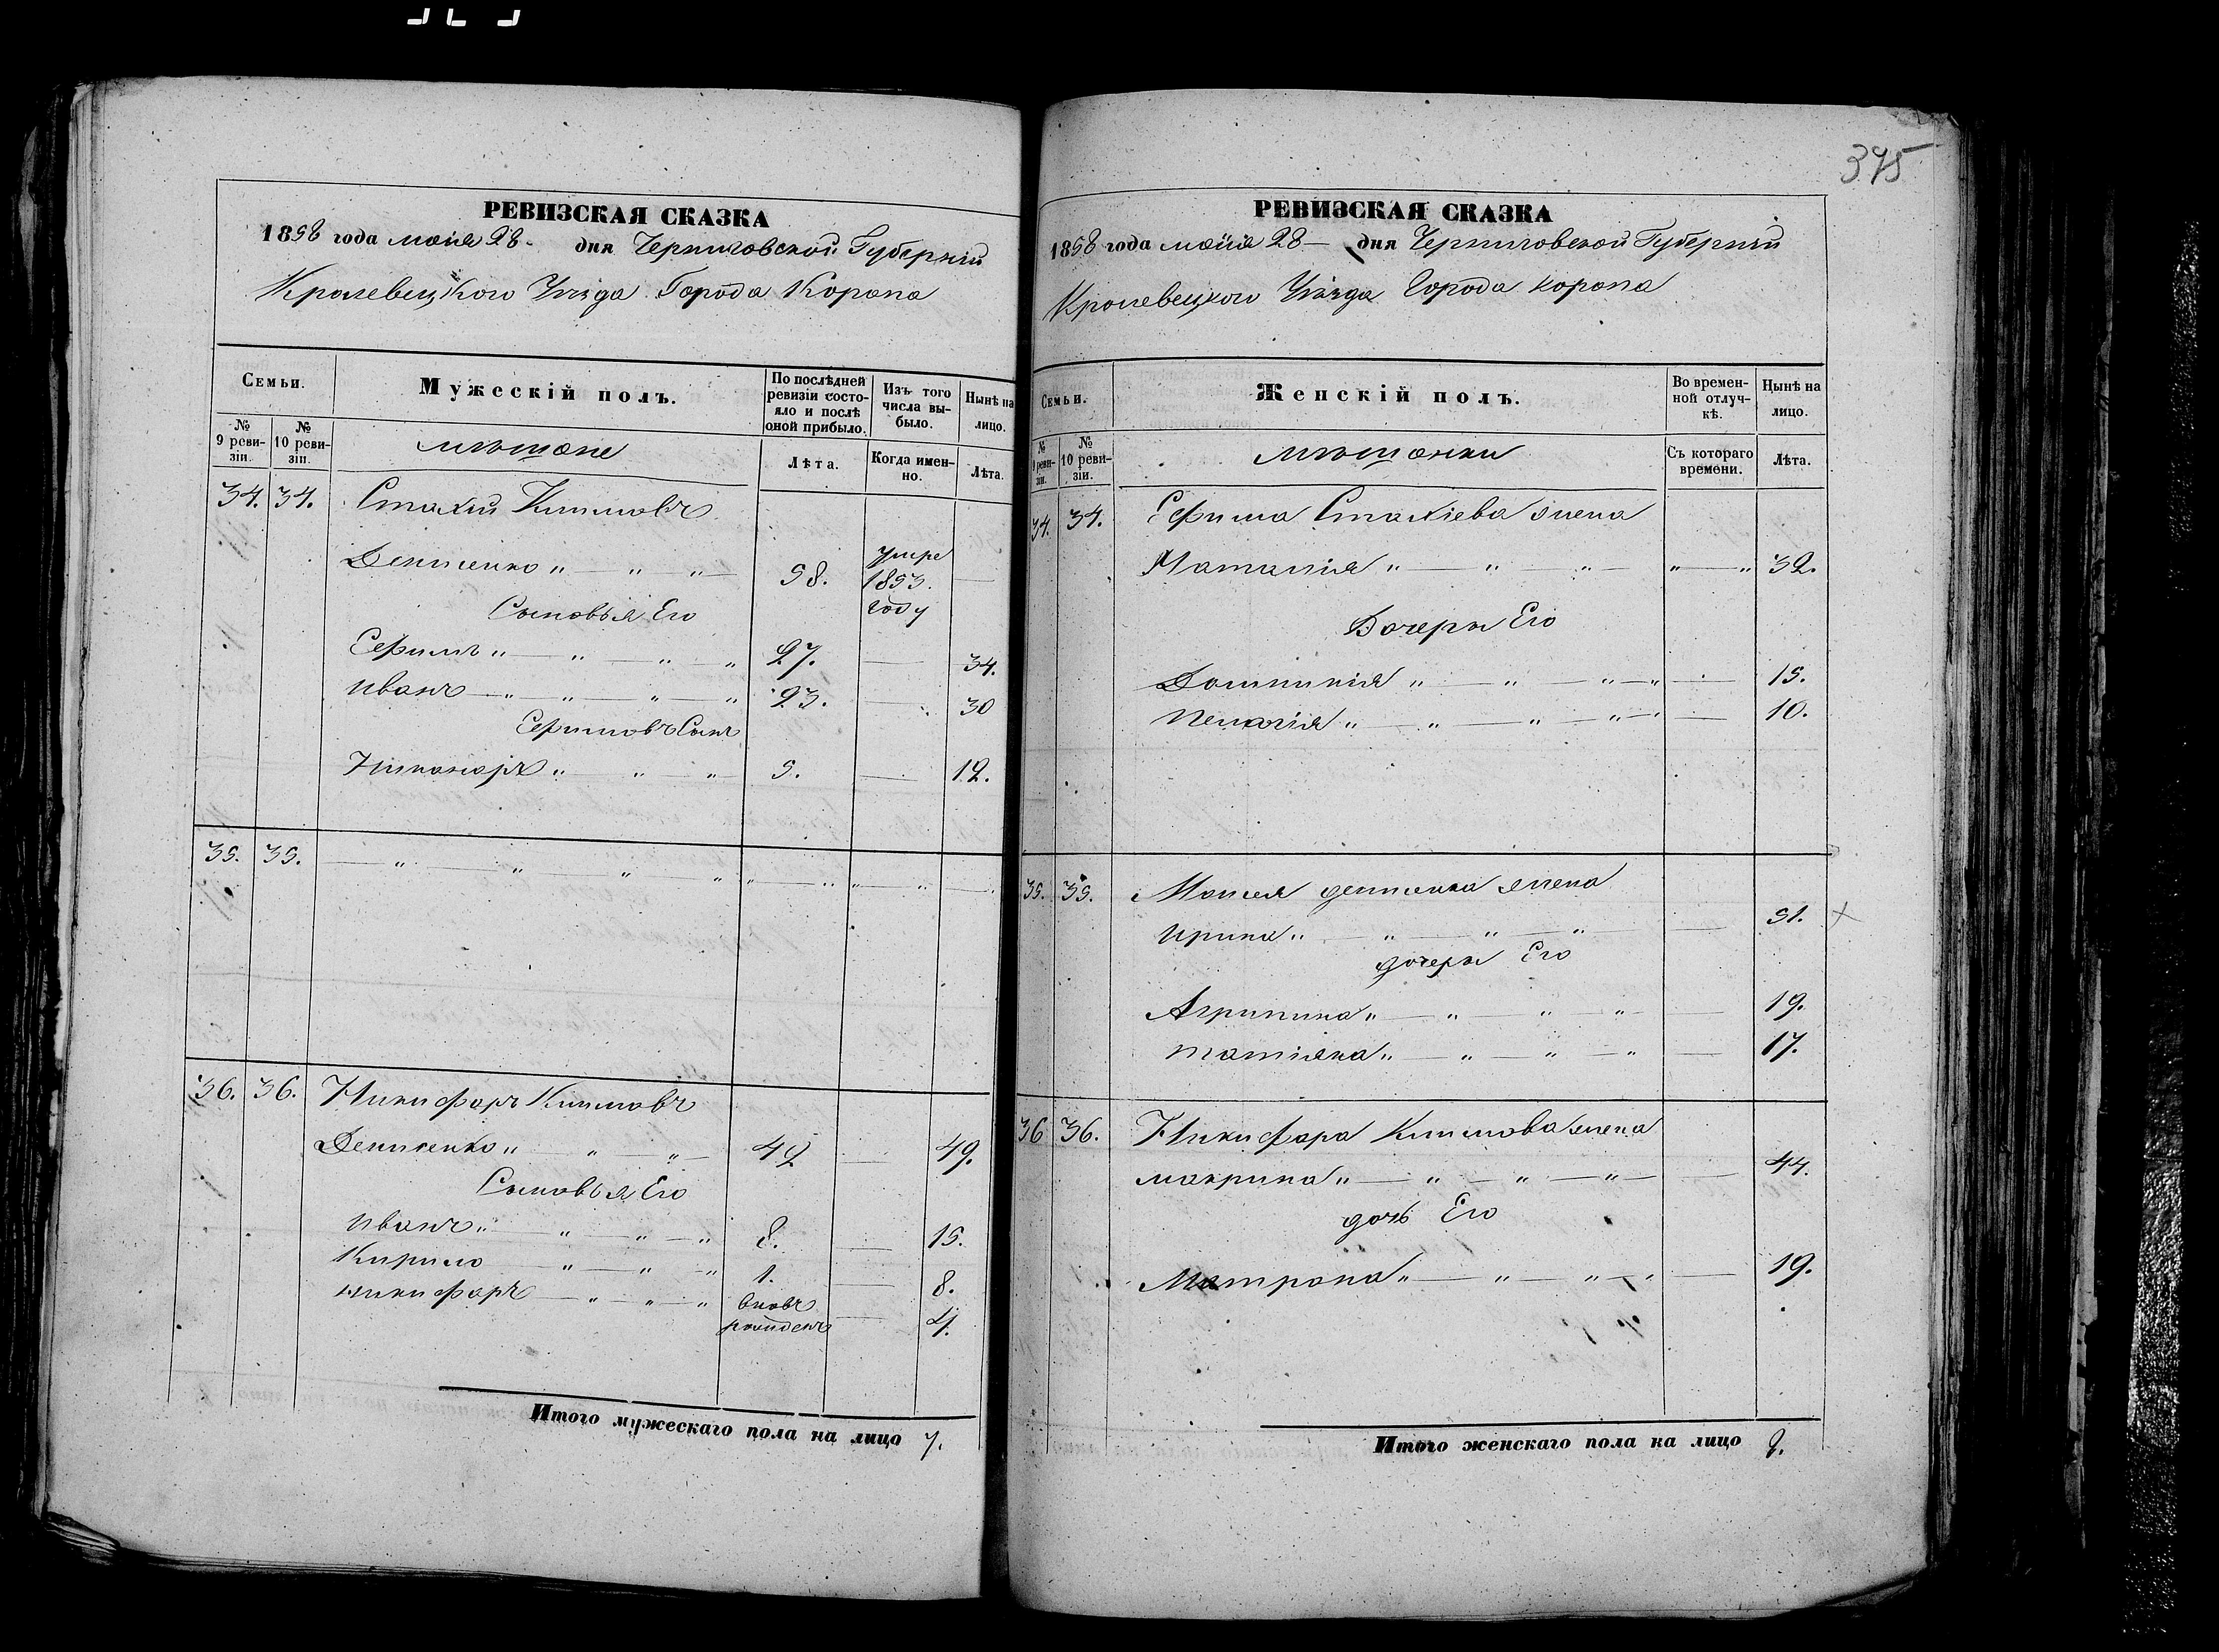 РЕВИЗСКАЯ СКАЗКА
1858 года маія 28 дня Черниговской Губерніи
Кролевецкого Уѣзда Города Коропа
Семьи.
Мужескій полъ.
По послѣдней ревизіи состояло и послѣ оной прибыло.
Изъ того числа выбыло.
Нынѣ на лицо.
№ 9 ревизіи.
№ 10 ревизіи.
мѣщане
Лѣта.
Когда именно.
Лѣта.
34. 34. Стахій Климовъ
Денисенко „ — „ „ — 58. умре 1853. году —
Сыновья Его
Ефимъ „ — „ — „ — „ 27. — 34.
Иванъ — „ „ „ „ 23. — 30
Ефимовъ Сынъ
Никаноръ „ „ „ 5. — 12.
35. 35. — „ — „ „ „ „ — „ „ — „ —
36. 36. Никифоръ Климовъ
Денисенко „ — „ — „ — 42 — 49.
Сыновья Его
Иванъ „ — „ — „ — „ 8. — 15.
Кирило „ — „ — „ 1. — 8.
Никифоръ — „ — „ — „ вновъ рожденъ — 4.
Итого мужескаго пола на лицо 7.
375
РЕВИЗСКАЯ СКАЗКА
1858 года маія 28 — дня Черниговской Губерніи
Кролевецкого Уѣзда Города Коропа
Семьи.
Женскій полъ.
Во временной отлучкѣ.
Нынѣ на лицо.
№ 9 ревизіи.
№ 10 ревизіи.
мѣщанки
Съ котораго времени.
Лѣта.
34. 34. Ефима Стахіева жена
Наталія „ — „ — „ — „ — „ 32.
Дочери Его
Домникія „ — „ — „ — „ — 15.
Пелагія „ — „ — „ — „ — 10.
35. 35. Моисея денисенка жена
Ирина „ — „ — „ — „ — 51. ×
дочери Его
Агрипина „ — „ — „ — „ 19.
татіяна „ — „ — „ — „ — 17.
36 36. Никифора Климова жена
макрина „ — „ — „ — „ — 44.
дочь Его
Матрона „ — „ — „ — „ — 19.
Итого женскаго пола на лицо